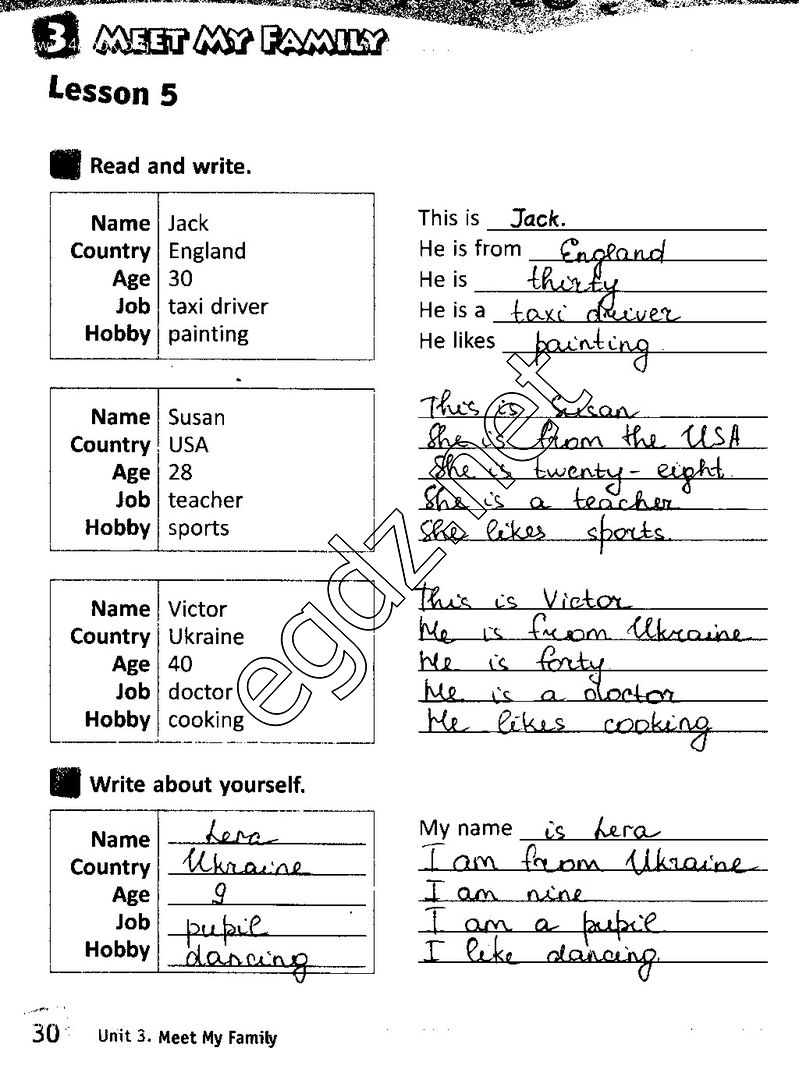 3 MEET MY FAMILY
Lesson 5
Read and write.
Name Jack
Country England
Age 30
Job taxi driver
Hobby painting
This is Jack.
He is from England
He is thirty
He is a taxi driver
He likes painting.
Name Susan
Country USA
Age 28
Job teacher
Hobby sports
This is Susan
She is from the USA
She is twenty-eight.
She is a teacher
She likes sports.
Name Victor
Country Ukraine
Age 40
Job doctor
Hobby cooking
This is Victor
He is from Ukraine
He is forty
He is a doctor
He likes cooking
egdz.net
Write about yourself.
Name Lera
Country Ukraine
Age 9
Job pupil
Hobby dancing
My name is Lera
I am from Ukraine
I am nine
I am a pupil
I like dancing.
30 Unit 3. Meet My Family